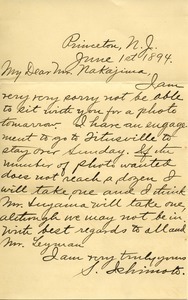 Princeton, N.J.
June 1st 1894.
My Dear Mr. Nakajima,
I am
very very sorry not be able
to sit with you for a photo
tomorrow. I have an engage-
ment to go to Titusville to
stay over Sunday. If the
number of photo wanted
does not reach a dozen I
will take one and I think
Mr. Suyama will take one,
although we may not be in.
With best regards to all and
Mr. Leyman
I am very truly yours
S. Ishimoto.